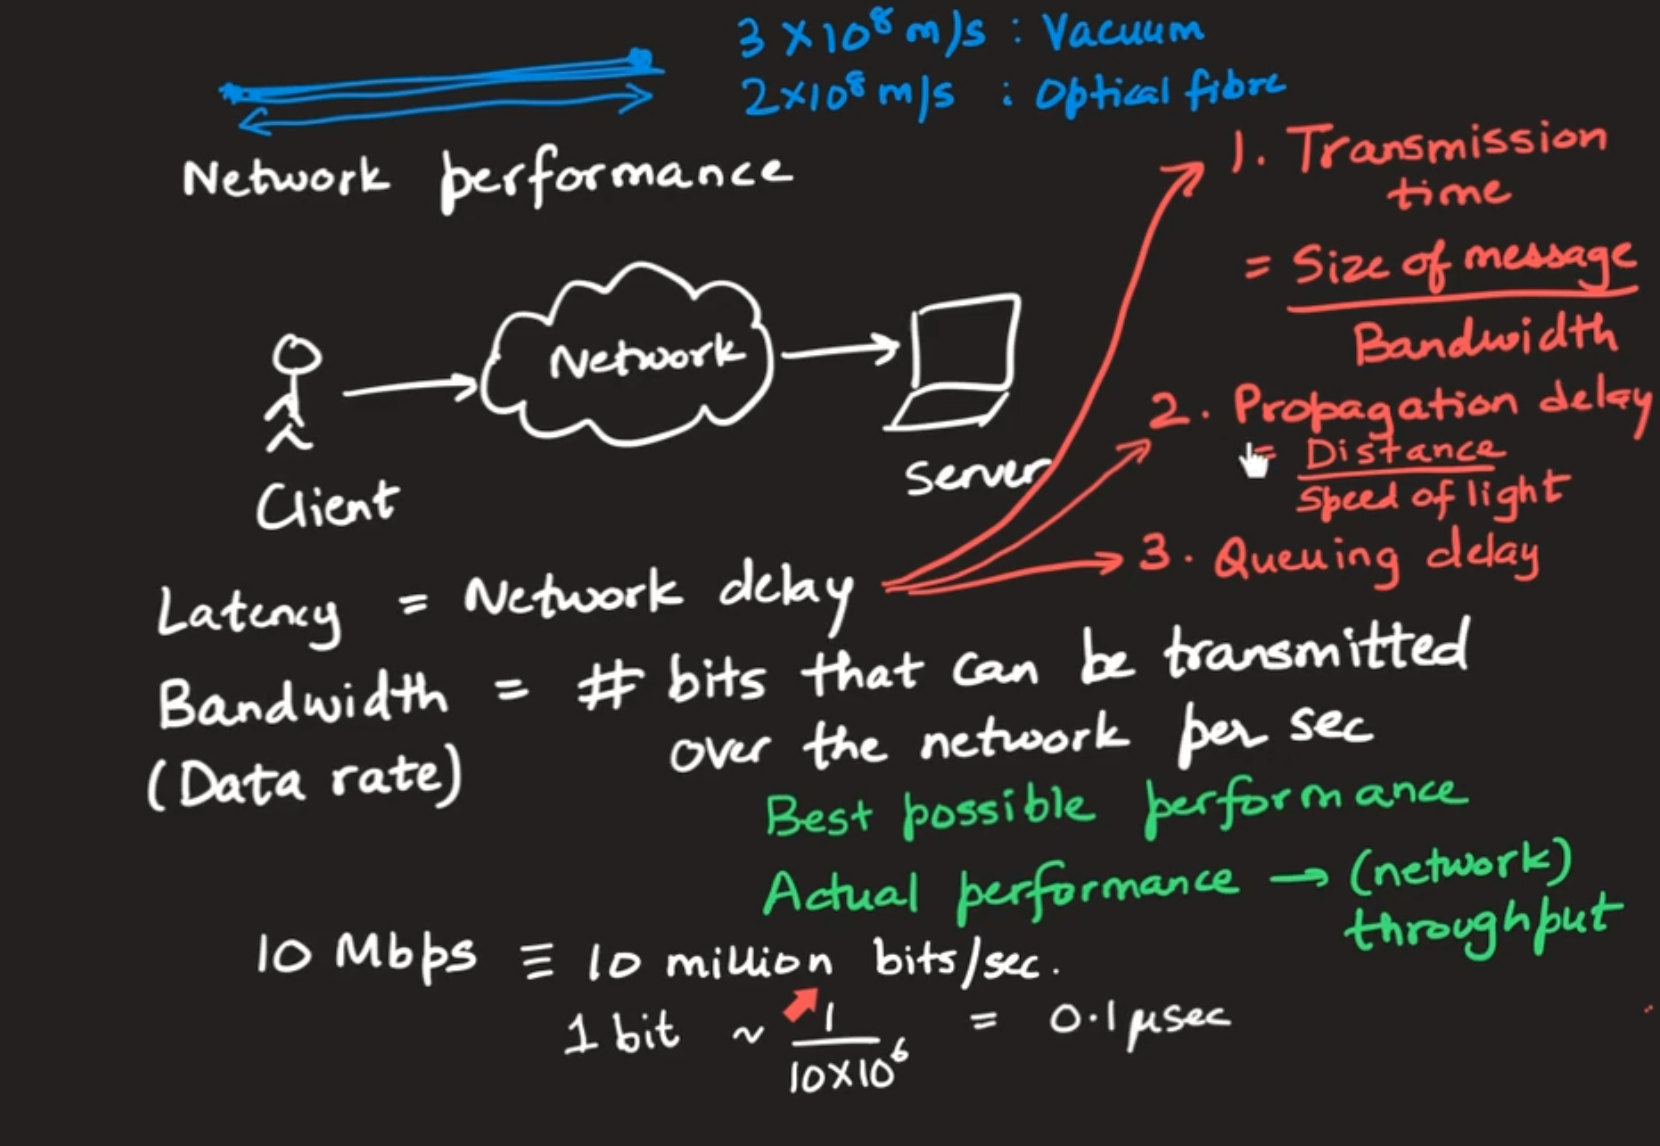 3 × 10⁸ m/s : Vacuum
2 × 10⁸ m/s : Optical fibre
Network performance
1. Transmission
time
= Size of message
Bandwidth
Network
Client
Server
2. Propagation delay
= Distance
Speed of light
3. Queuing delay
Latency = Network delay
Bandwidth = # bits that can be transmitted
(Data rate) over the network per sec
Best possible performance
Actual performance → (network)
throughput
10 Mbps ≡ 10 million bits/sec.
1 bit ~ 1 = 0.1 μsec
10×10⁶